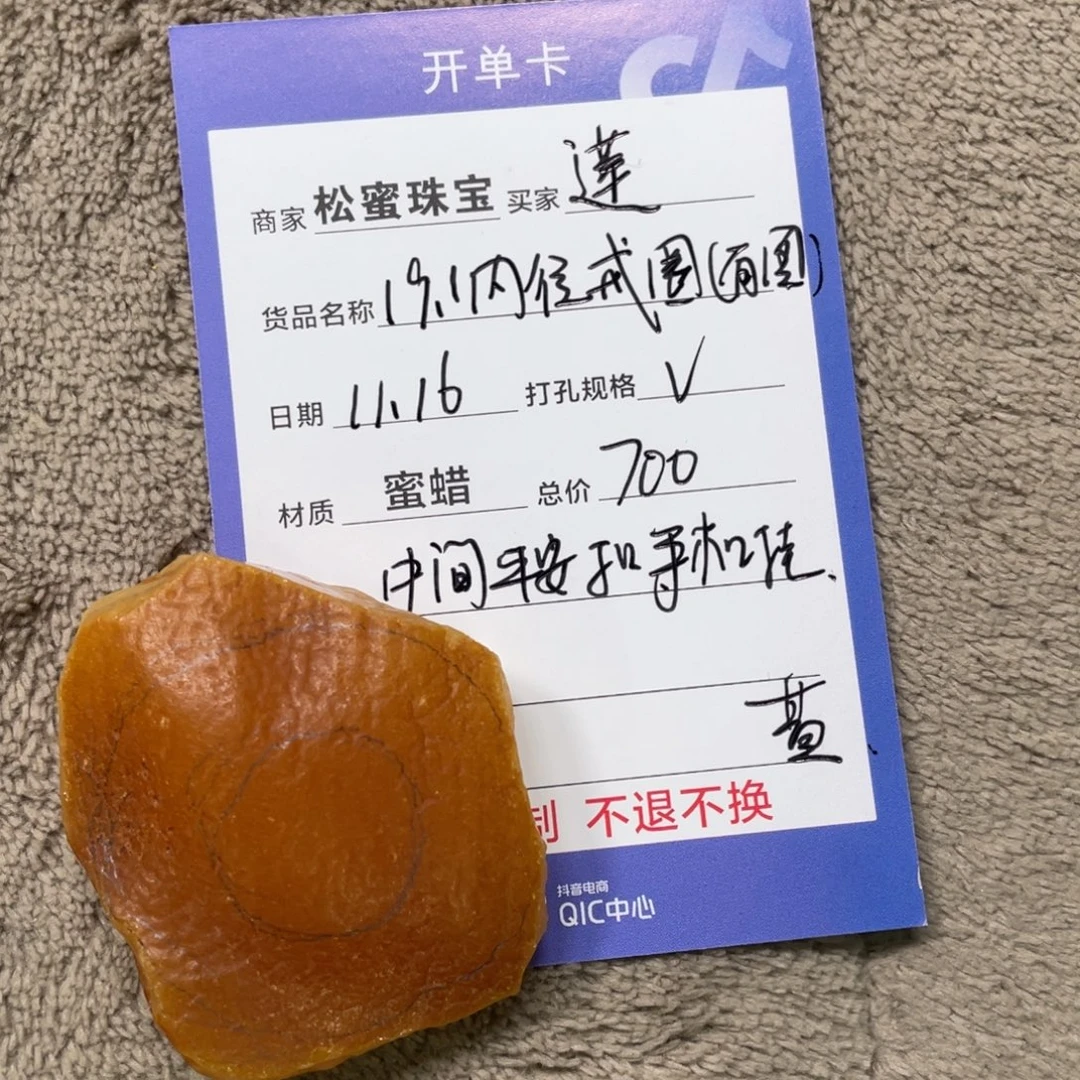 开单卡
商家 松蜜珠宝 买家 莲
货品名称 19.1内径戒圈(有图)
日期 11.16 打孔规格 V
材质 蜜蜡 总价 700
中间平安扣寻松佳.
制 不退不换
抖音电商
QIC中心